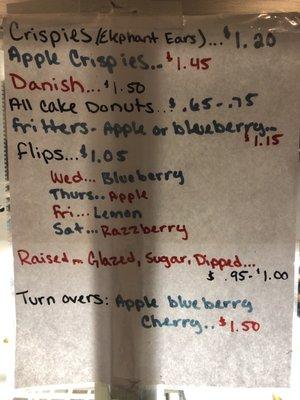 Crispies/(Elephant Ears)...$1.20
Apple Crispies..$1.45
Danish...$1.50
All Cake Donuts...$.65-.75
Fritters- Apple or blueberry...
$1.15
Flips...$1.05
Wed... Blueberry
Thurs.. Apple
Fri... Lemon
Sat...Razzberry
Raised... Glazed, Sugar, Dipped...
$.95-$1.00
Turn overs: Apple blueberry
Cherry..$1.50